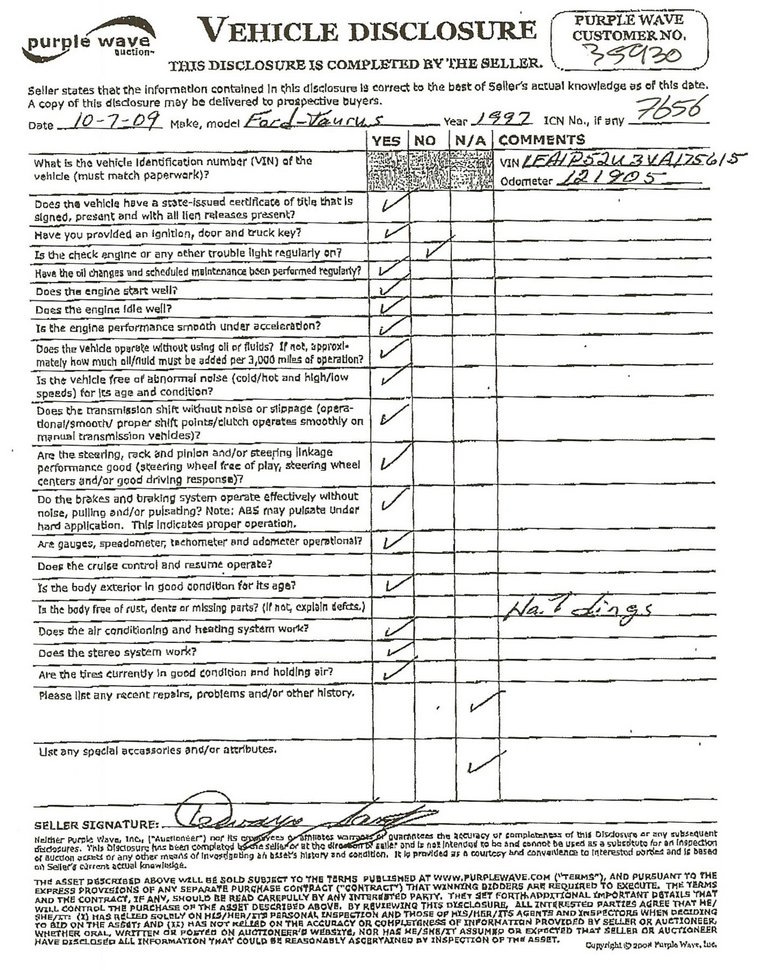 purple wave
auction™
VEHICLE DISCLOSURE
THIS DISCLOSURE IS COMPLETED BY THE SELLER.
PURPLE WAVE
CUSTOMER NO.
35930
Seller states that the information contained in this disclosure is correct to the best of Seller's actual knowledge as of this date.
A copy of this disclosure may be delivered to prospective buyers.
Date 10-7-09 Make, model Ford-Taurus Year 1997 ICN No., if any 7656
YES NO N/A COMMENTS
What is the vehicle identification number (VIN) of the
vehicle (must match paperwork)?
VIN 1FALP52U3VA175615
Odometer 121905
Does the vehicle have a state-issued certificate of title that is
signed, present and with all lien releases present?
Have you provided an ignition, door and truck key?
Is the check engine or any other trouble light regularly on?
Have the oil changes and scheduled maintenance been performed regularly?
Does the engine start well?
Does the engine idle well?
Is the engine performance smooth under acceleration?
Does the vehicle operate without using oil or fluids? If not, approxi-
mately how much oil/fluid must be added per 3,000 miles of operation?
Is the vehicle free of abnormal noise (cold/hot and high/low
speeds) for its age and condition?
Does the transmission shift without noise or slippage (opera-
tional/smooth/ proper shift points/clutch operates smoothly on
manual transmission vehicles)?
Are the steering, rack and pinion and/or steering linkage
performance good (steering wheel free of play, steering wheel
centers and/or good driving response)?
Do the brakes and braking system operate effectively without
noise, pulling and/or pulsating? Note: ABS may pulsate under
hard application. This indicates proper operation.
Are gauges, speedometer, tachometer and odometer operational?
Does the cruise control and resume operate?
Is the body exterior in good condition for its age?
Is the body free of rust, dents or missing parts? (if not, explain defcts.) dings
Does the air conditioning and heating system work?
Does the stereo system work?
Are the tires currently in good condition and holding air?
Please list any recent repairs, problems and/or other history.
List any special accessories and/or attributes.
SELLER SIGNATURE:
Neither Purple Wave, Inc., ("Auctioneer") nor its employees or affiliates warrants or guarantees the accuracy or completeness of this Disclosure or any subsequent
disclosures. This Disclosure has been completed by the seller or at the direction of seller and is not intended to be and cannot be used as a substitute for an inspection
of auction assets or any other means of investigating an asset's history and condition. It is provided as a courtesy and convenience to interested parties and is based
on Seller's current actual knowledge.
THE ASSET DESCRIBED ABOVE WILL BE SOLD SUBJECT TO THE TERMS PUBLISHED AT WWW.PURPLEWAVE.COM ("TERMS"), AND PURSUANT TO THE
EXPRESS PROVISIONS OF ANY SEPARATE PURCHASE CONTRACT ("CONTRACT") THAT WINNING BIDDERS ARE REQUIRED TO EXECUTE. THE TERMS
AND THE CONTRACT, IF ANY, SHOULD BE READ CAREFULLY BY ANY INTERESTED PARTY. THEY SET FORTH ADDITIONAL IMPORTANT DETAILS THAT
WILL CONTROL THE PURCHASE OF THE ASSET DESCRIBED ABOVE. BY REVIEWING THIS DISCLOSURE, ALL INTERESTED PARTIES AGREE THAT HE/
SHE/IT: (I) HAS RELIED SOLELY ON HIS/HER/ITS PERSONAL INSPECTION AND THOSE OF HIS/HER/ITS AGENTS AND INSPECTORS WHEN DECIDING
TO BID ON THE ASSET; AND (II) HAS NOT RELIED ON THE ACCURACY OR COMPLETENESS OF INFORMATION PROVIDED BY SELLER OR AUCTIONEER,
WHETHER ORAL, WRITTEN OR POSTED ON AUCTIONEER'S WEBSITE, NOR HAS HE/SHE/IT ASSUMED OR EXPECTED THAT SELLER OR AUCTIONEER
HAVE DISCLOSED ALL INFORMATION THAT COULD BE REASONABLY ASCERTAINED BY INSPECTION OF THE ASSET.
Copyright © 2008 Purple Wave, Inc.